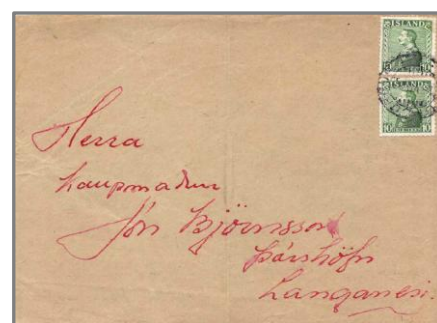 ÍSLAND
ÍSLAND
10 10
Herra
kaupmaður
Jón Björnsson
Þórshöfn
Langanesi.